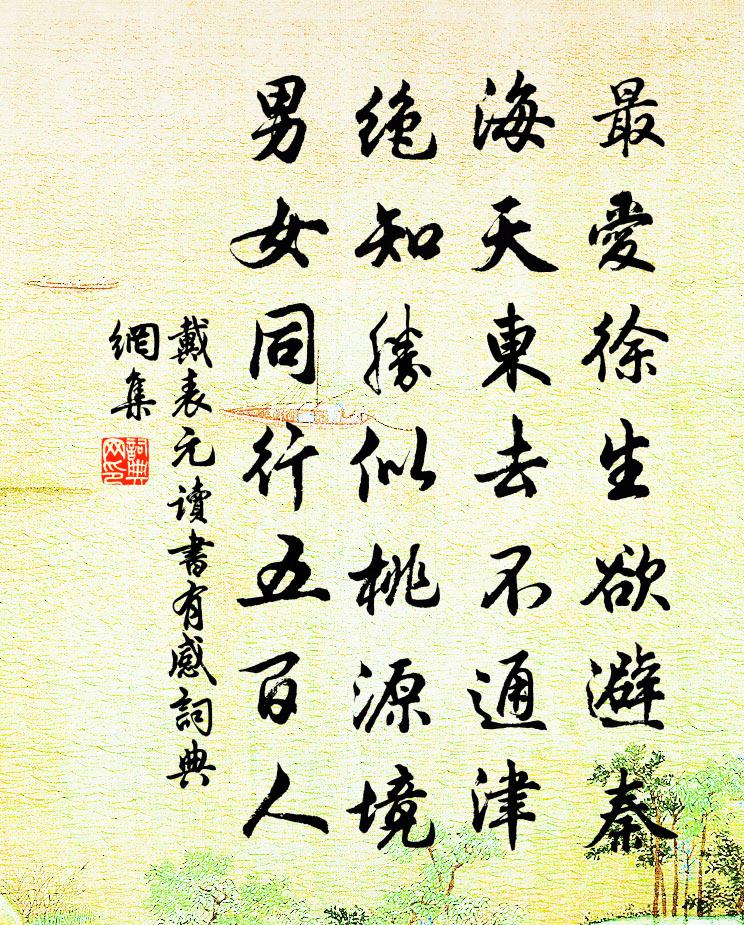 最愛徐生欲避秦
海天東去不通津
絶知勝似桃源境
男女同行五百人
戴表元讀書有感詞典
網集
詞典
网印